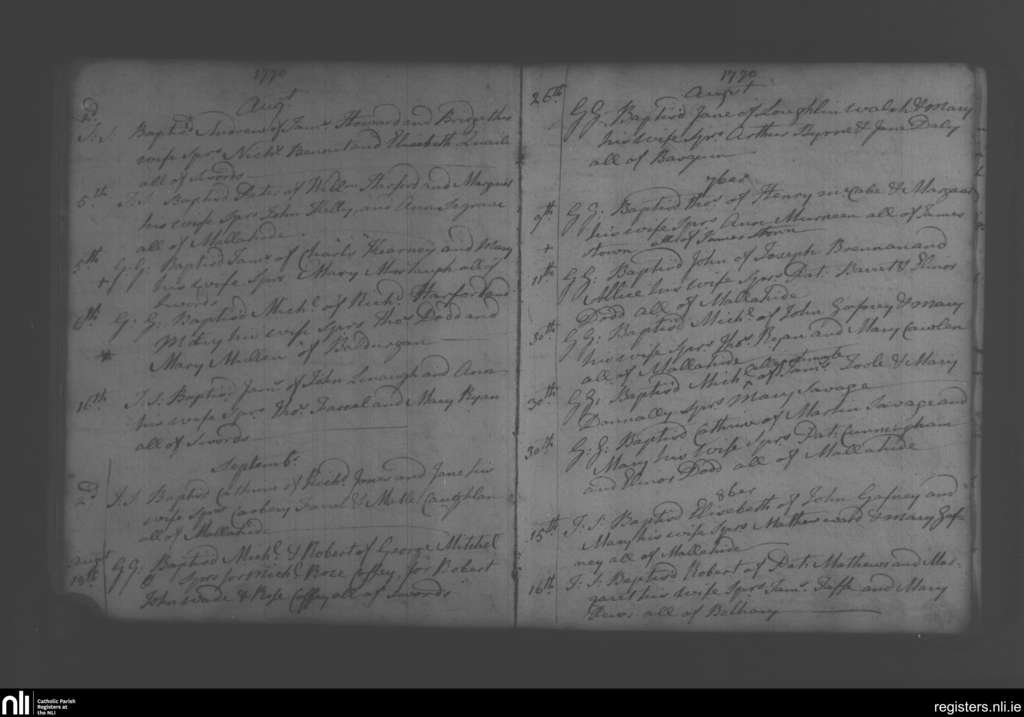 1770
Augt
2d
J. S Baptd Andrew of Jams Howard and Bridget his
wife Sprs Nichs Bennet and Elisabeth
all of Swords
5th J. S. Baptisd Patt: of Willm Harford and Margaret
his wife Sprs John Kelly, and Ann Segrave
all of Mallahide
5th G. G. Baptisd Jams of Charls Kearney and Mary
+ his wife Sprs Mary Murtaugh all of
Swords
6th G. G. Baptisd Michl of Richd Harford and
Mary his wife Sprs Thos Dodd and
* Mary of
16th J. S. Baptisd Jams of John and Ann
his wife Sprs Thos Farral and Mary Ryan
all of Swords
Septembr
2d J. S Baptisd Catherine of Richd Jones and Jane his
wife Sprs Farrel & Caughlan
all of Mallahide
Augt
18th GG. Baptisd Michl & Robert of George Mitchel
Sprs for Michl Rose Coffey for Robert
John Wade & Rose Coffey all of Swords
1770
Augst
26th GG. Baptisd Jane of Laughlin Walsh & Mary
his wife Sprs Arthur Byrne & Jane Daly
all of
7ber
9th GG. Baptisd Thos of Henry McCabe & Margaret
his wife Sprs Ann all of James
town all of James Town
+
11th GG. Baptisd John of Joseph Brennan and
Allice his wife Sprs Pat: Barret & Elinor
Dodd all of Mallahide
30th GG. Baptisd Michl of John Gafney & Mary
his wife Sprs Thos Ryan and Mary Cawlen
all of Mallahide
30th GG. Baptisd Michl of Jams Toole & Mary
Donnally Sprs Mary Savage
30th G. G. Baptisd Cathrine of Martin Savage and
Mary his wife Sprs Pat: Cunningham
and Elinor Dodd all of Mallahide
8ber
15th J. S. Baptisd Elizebeth of John Gafney and
Mary his wife Sprs Mathew Ward & Mary Gaf-
ney all of Mallahide
16th J. S. Baptisd Robert of Pat: Mathews and Mar-
garet his wife Sprs Jams Taffe and Mary
all of
nli
Catholic Parish
Registers at
the NLI
registers.nli.ie